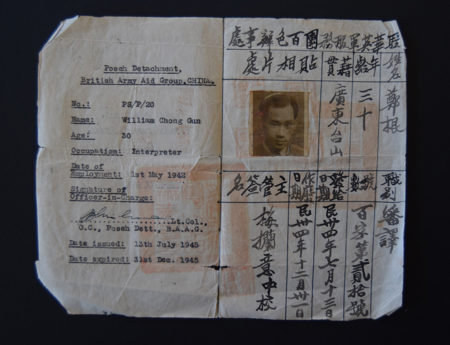 Poseh Detachment,
British Army Aid Group, CHINA.
No.: PS/P/20
Name: William Chong Gun
Age: 30
Occupation: Interpreter
Date of
Employment: 1st May 1942
Signature of
Officer-in-Charge:
Lt.Col.,
O.C., Poseh Dett., B.A.A.G.
Date issued: 13th July 1945
Date expired: 31st Dec. 1945
駐華英軍服務團百色辦事處
姓名 鄭根
年齡 三十
籍貫 廣東台山
貼相片處
職別 繙譯
號數 百字第貳拾號
發給日期 民卅四年七月十三日
作廢日期 民卅四年十二月卅一日
主管簽名 中校